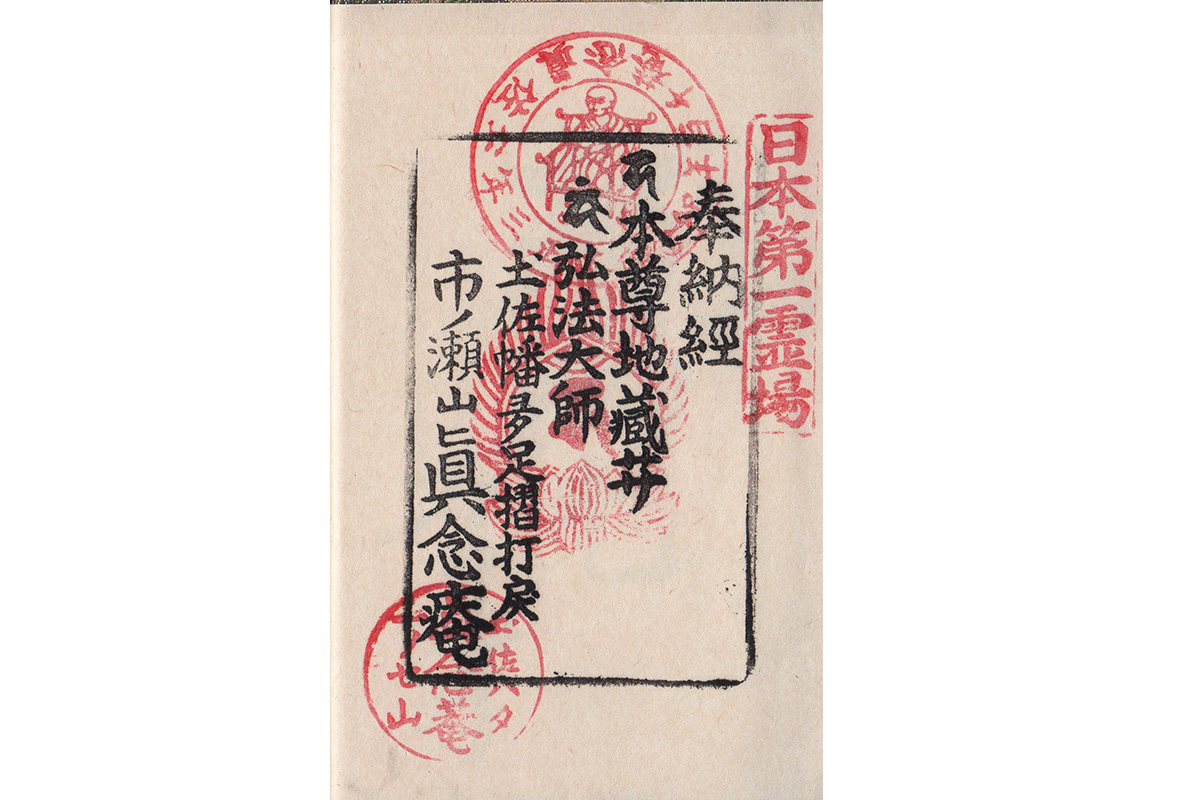 日本第一霊場
奉納經
本尊地藏𦬇
弘法大師
圡佐幡夛足摺打戻
市ノ瀬山眞念庵